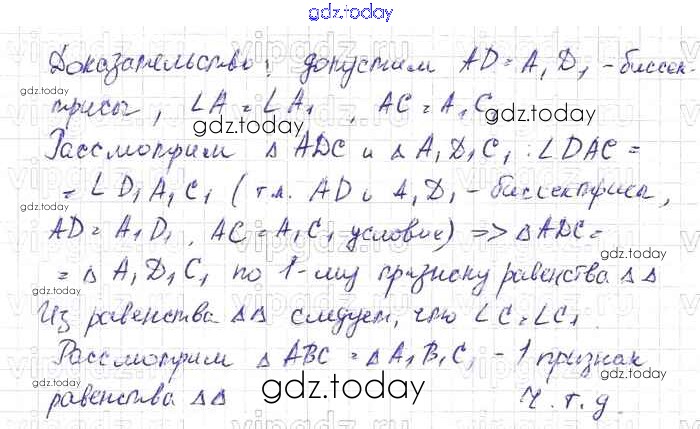 gdz.today
Доказательство: допустим AD = A₁D₁ - биссек-
gdz.today
трисы, ∠A = ∠A₁, AC = A₁C₁
gdz.today
gdz.today
Рассмотрим △ ADC и △ A₁D₁C₁ : ∠DAC =
= ∠D₁A₁C₁ (т.к. AD и A₁D₁ - биссектрисы,
gdz.today
gdz.today
AD = A₁D₁, AC = A₁C₁ условие) => △ADC =
= △ A₁D₁C₁ по 1-му признаку равенства △△
gdz.today
gdz.today
Из равенства △△ следует, что ∠C = ∠C₁
Рассмотрим △ ABC = △A₁B₁C₁ - 1 признак
gdz.today
gdz.today
gdz.today
равенства △△ Ч.т.д.